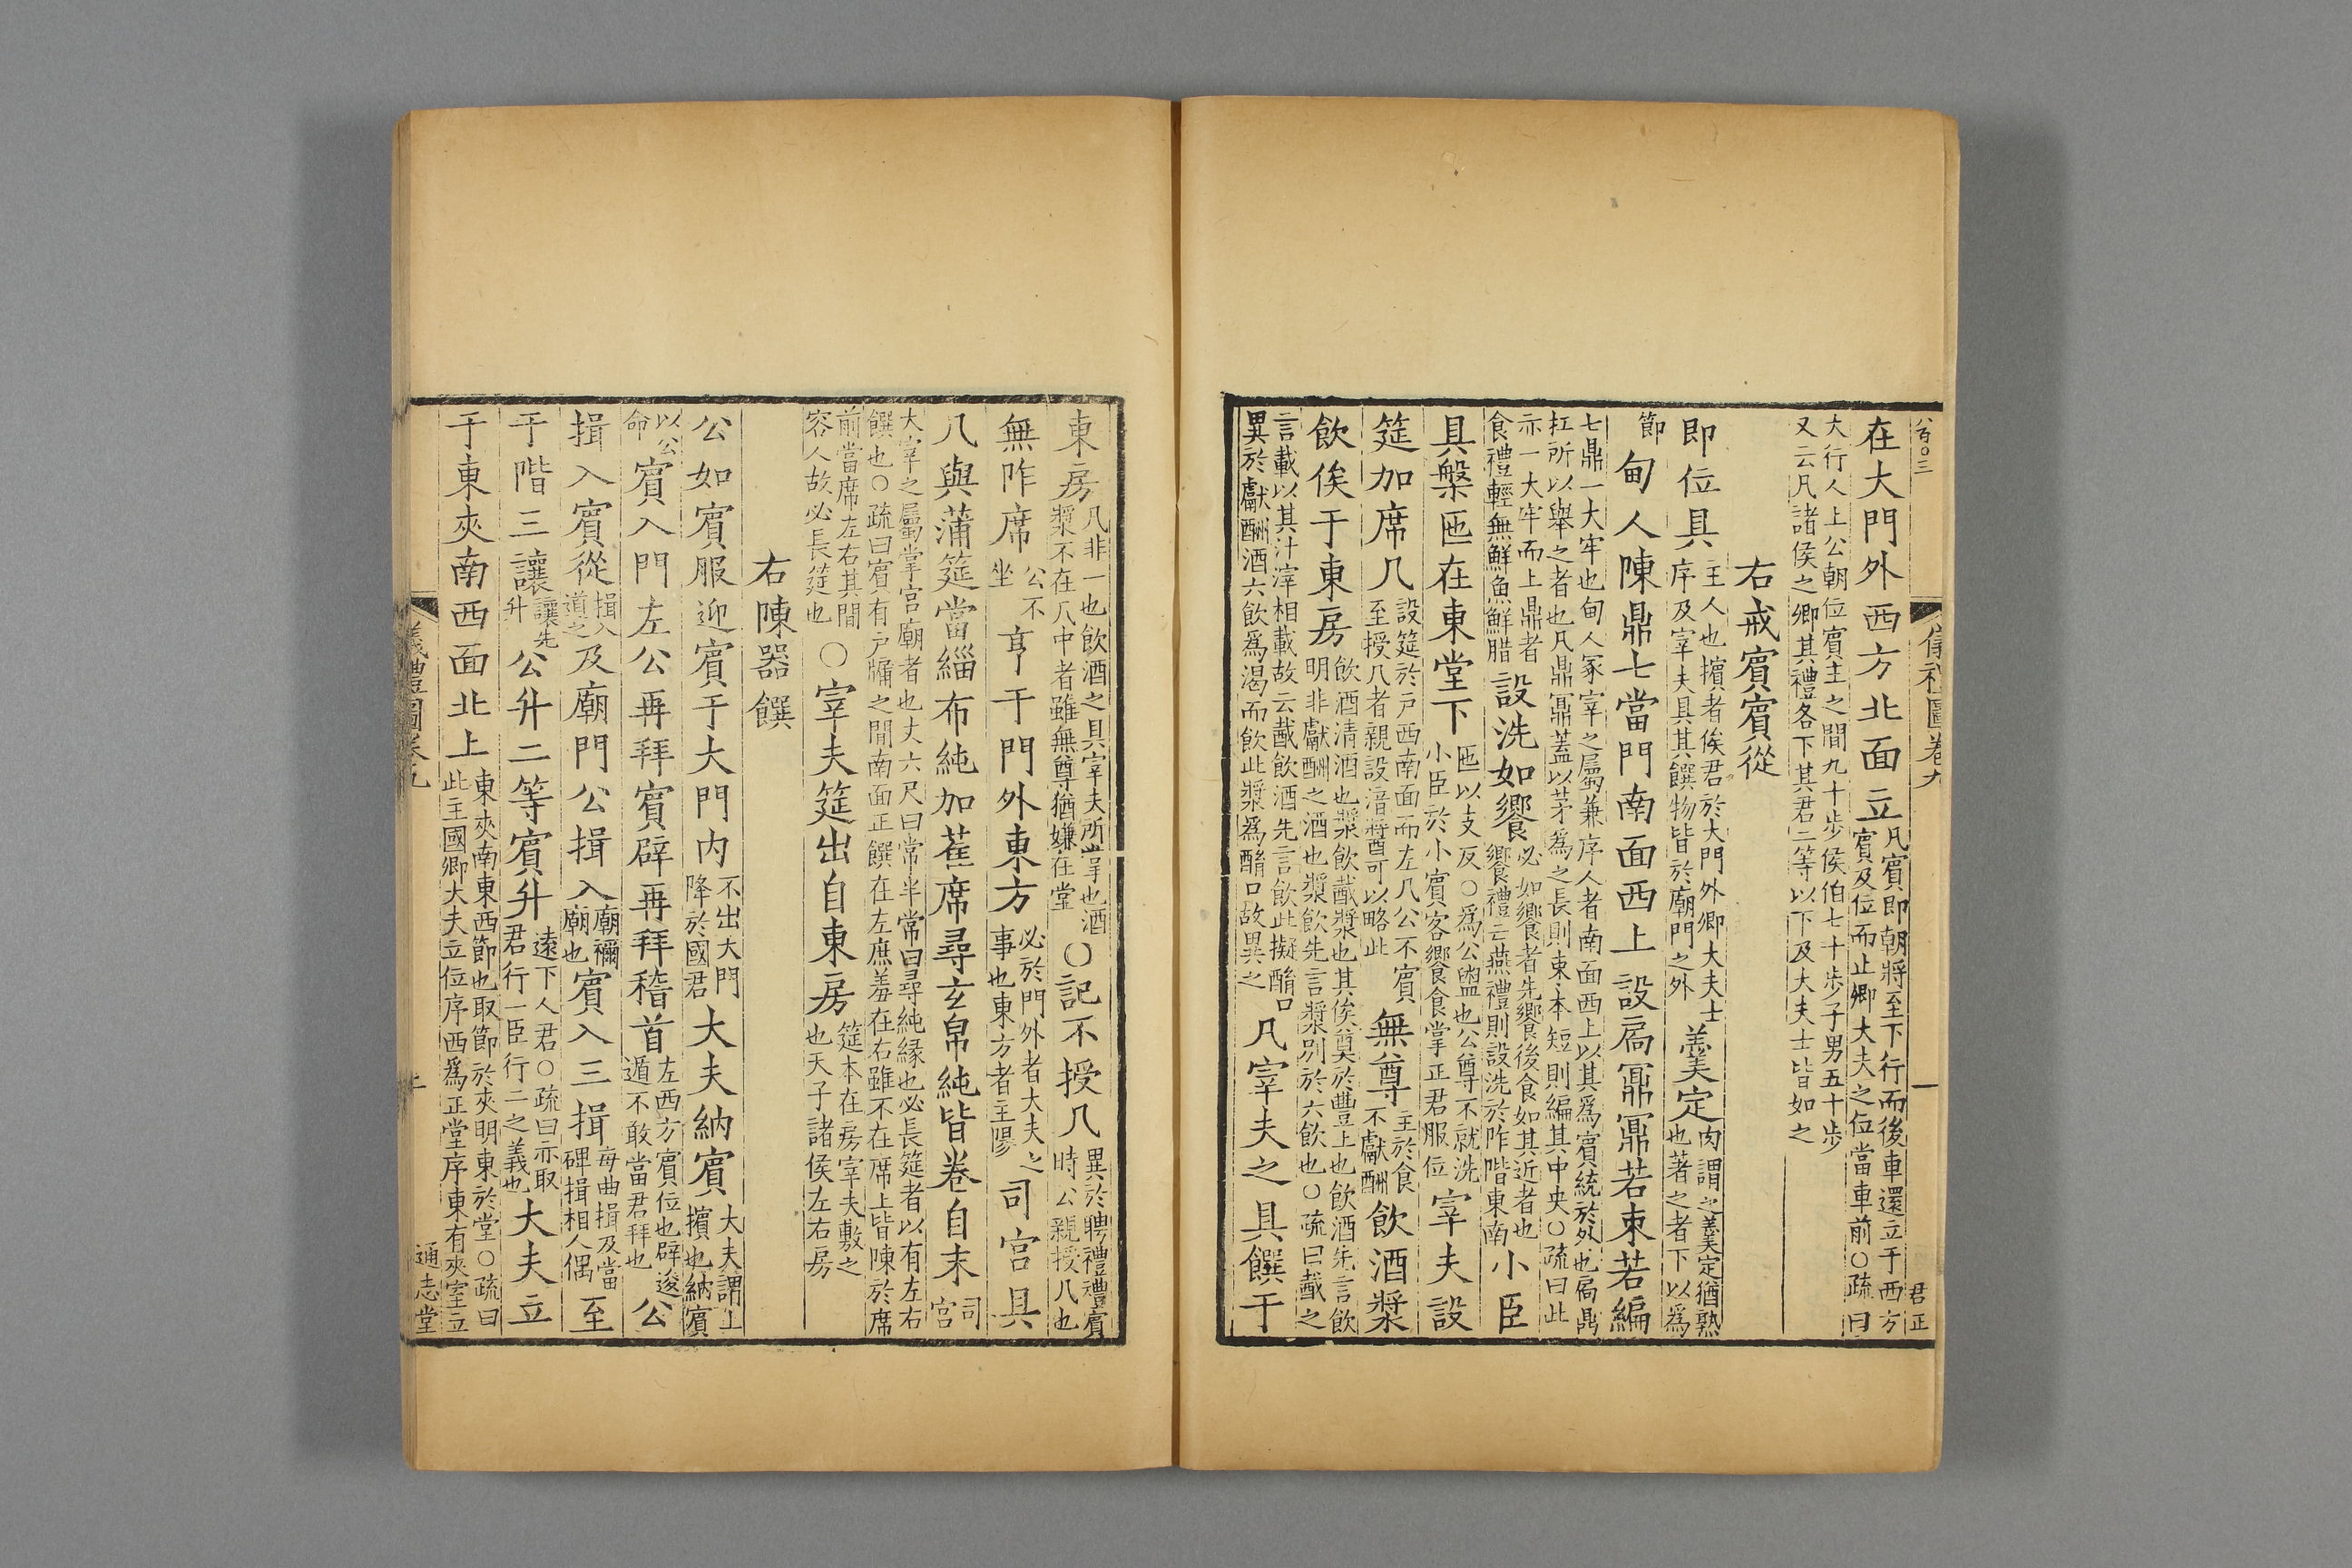 八百〇三
儀禮圖卷九
一
君正
在大門外西方北面立凡賓即朝將至下行而後車還立于西方賓及位而止卿大夫之位當車前○疏曰
大行人上公朝位賓主之間九十步侯伯七十步子男五十步又云凡諸侯之卿其禮各下其君二等以下及大夫士皆如之
右戒賓賓從
即位具主人也擯者俟君於大門外卿大夫士序及宰夫具其饌物皆於廟門之外羹定肉謂之羹定猶熟也著之者下以爲
節甸人陳鼎七當門南面西上設扃鼏鼏若束若編
七鼎一大牢也甸人冢宰之屬兼序人者南面西上以其爲賓統於外也扃鼎扛所以舉之者也凡鼎鼏蓋以茅爲之長則束本短則編其中央○疏曰此
亦一大牢而上鼎者食禮輕無鮮魚鮮腊設洗如饗必如饗者先饗後食如其近者也饗禮云燕禮則設洗於阼階東南小臣
具槃匜在東堂下匜以支反○爲公盥也公尊不就洗小臣於小賓客饗食掌正君服位宰夫設
筵加席几設筵於戶西南面而左几公不賓至授几者親設湆醬可以略此無尊主於食不獻酬飲酒漿
飲俟于東房飲酒清酒也漿飲胾漿也其俟奠於豐上也飲酒先言飲明非獻酬之酒也漿飲先言漿別於六飲也○疏曰胾之
言載以其汁滓相載故云胾飲酒先言飲此擬酳口異於獻酬酒六飲爲渴而飲此漿爲酳口故異之凡宰夫之具饌于
東房凡非一也飲酒之具宰夫所掌也酒漿不在凡中者雖無尊猶嫌在堂○記不授几異於聘禮禮賓時公親授几也
無阼席公不坐亨于門外東方必於門外者大夫之事也東方者主陽司宮具
几與蒲筵常緇布純加萑席尋玄帛純皆卷自末司宮
大宰之屬掌宮廟者也丈六尺曰常半常曰尋純緣也必長筵者以有左右饌也○疏曰賓有戶牖之間南面正饌在左庶羞在右雖不在席上皆陳於席
前當席左右其間容人故必長筵也○宰夫筵出自東房筵本在房宰夫敷之也天子諸侯左右房
右陳器饌
公如賓服迎賓于大門內不出大門降於國君大夫納賓大夫謂上擯也納賓
以公命賓入門左公再拜賓辟再拜稽首左西方賓位也辟逡遁不敢當君拜也公
揖入賓從揖入道之及廟門公揖入廟禰廟也賓入三揖每曲揖及當碑揖相人偶至
于階三讓讓先升公升二等賓升遠下人君○疏曰亦取君行一臣行二之義也大夫立
于東夾南西面北上東夾南東西節也取節於夾明東於堂○疏曰此主國卿大夫立位序西爲正堂序東有夾室立
儀禮圖卷九
通志堂